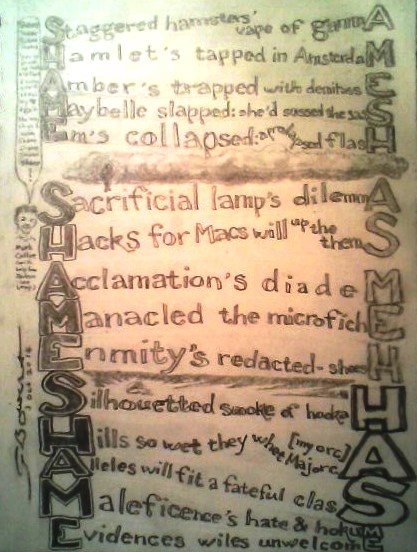 Staggered hamsters' vape of gamma
Hamlet's tapped in Amsterdam
Amber's trapped with
Maybelle slapped: she'd sassed the
Em's collapsed: flash
Sacrificial lamp's dilemma
Hacks for Macs will up the thems
Acclamation's diadem
Manacled the microfiche
Enmity's redacted-
Silhouetted smoke of hookah
Hills so wet they whet Majorca [my orc]
Alleles will fit a fateful class
Maleficence's hate & hokum
Evidences wiles unwelcome